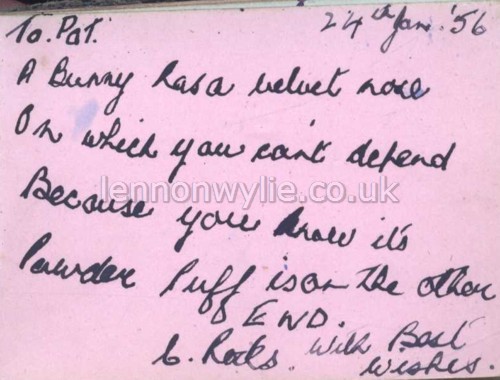 To. Pat. 24th Jan. '56
A Bunny has a velvet nose
On which you can't depend
Because you know it's
lennonwylie.co.uk
Powder Puff is on the other
END.
With Best
Wishes.